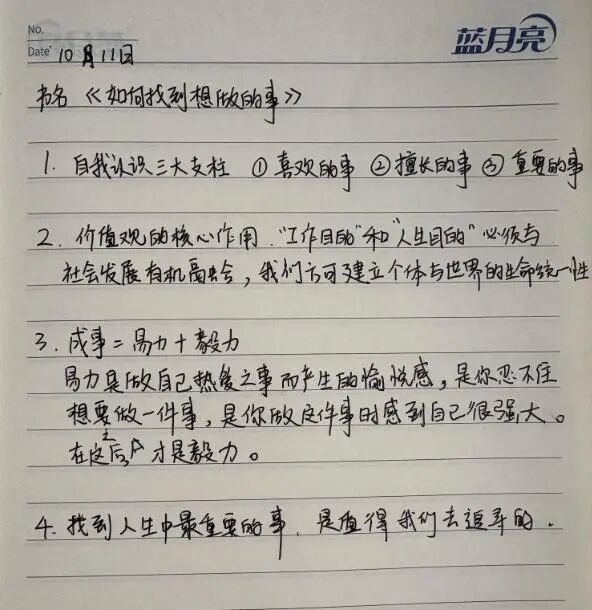 No.
Date 10月11日
蓝月亮
书名《如何找到想做的事》
1. 自我认识三大支柱 ①喜欢的事 ②擅长的事 ③重要的事
2. 价值观的核心作用."工作目的"和"人生目的"必须与
社会发展有机融合,我们方可建立个体与世界的生命统一性
3. 成事=易力+毅力
易力是做自己热爱之事而产生的愉悦感,是你忍不住
想要做一件事,是你做这件事时感到自己很强大。
在这之后,才是毅力。
4. 找到人生中最重要的事.是值得我们去追寻的.